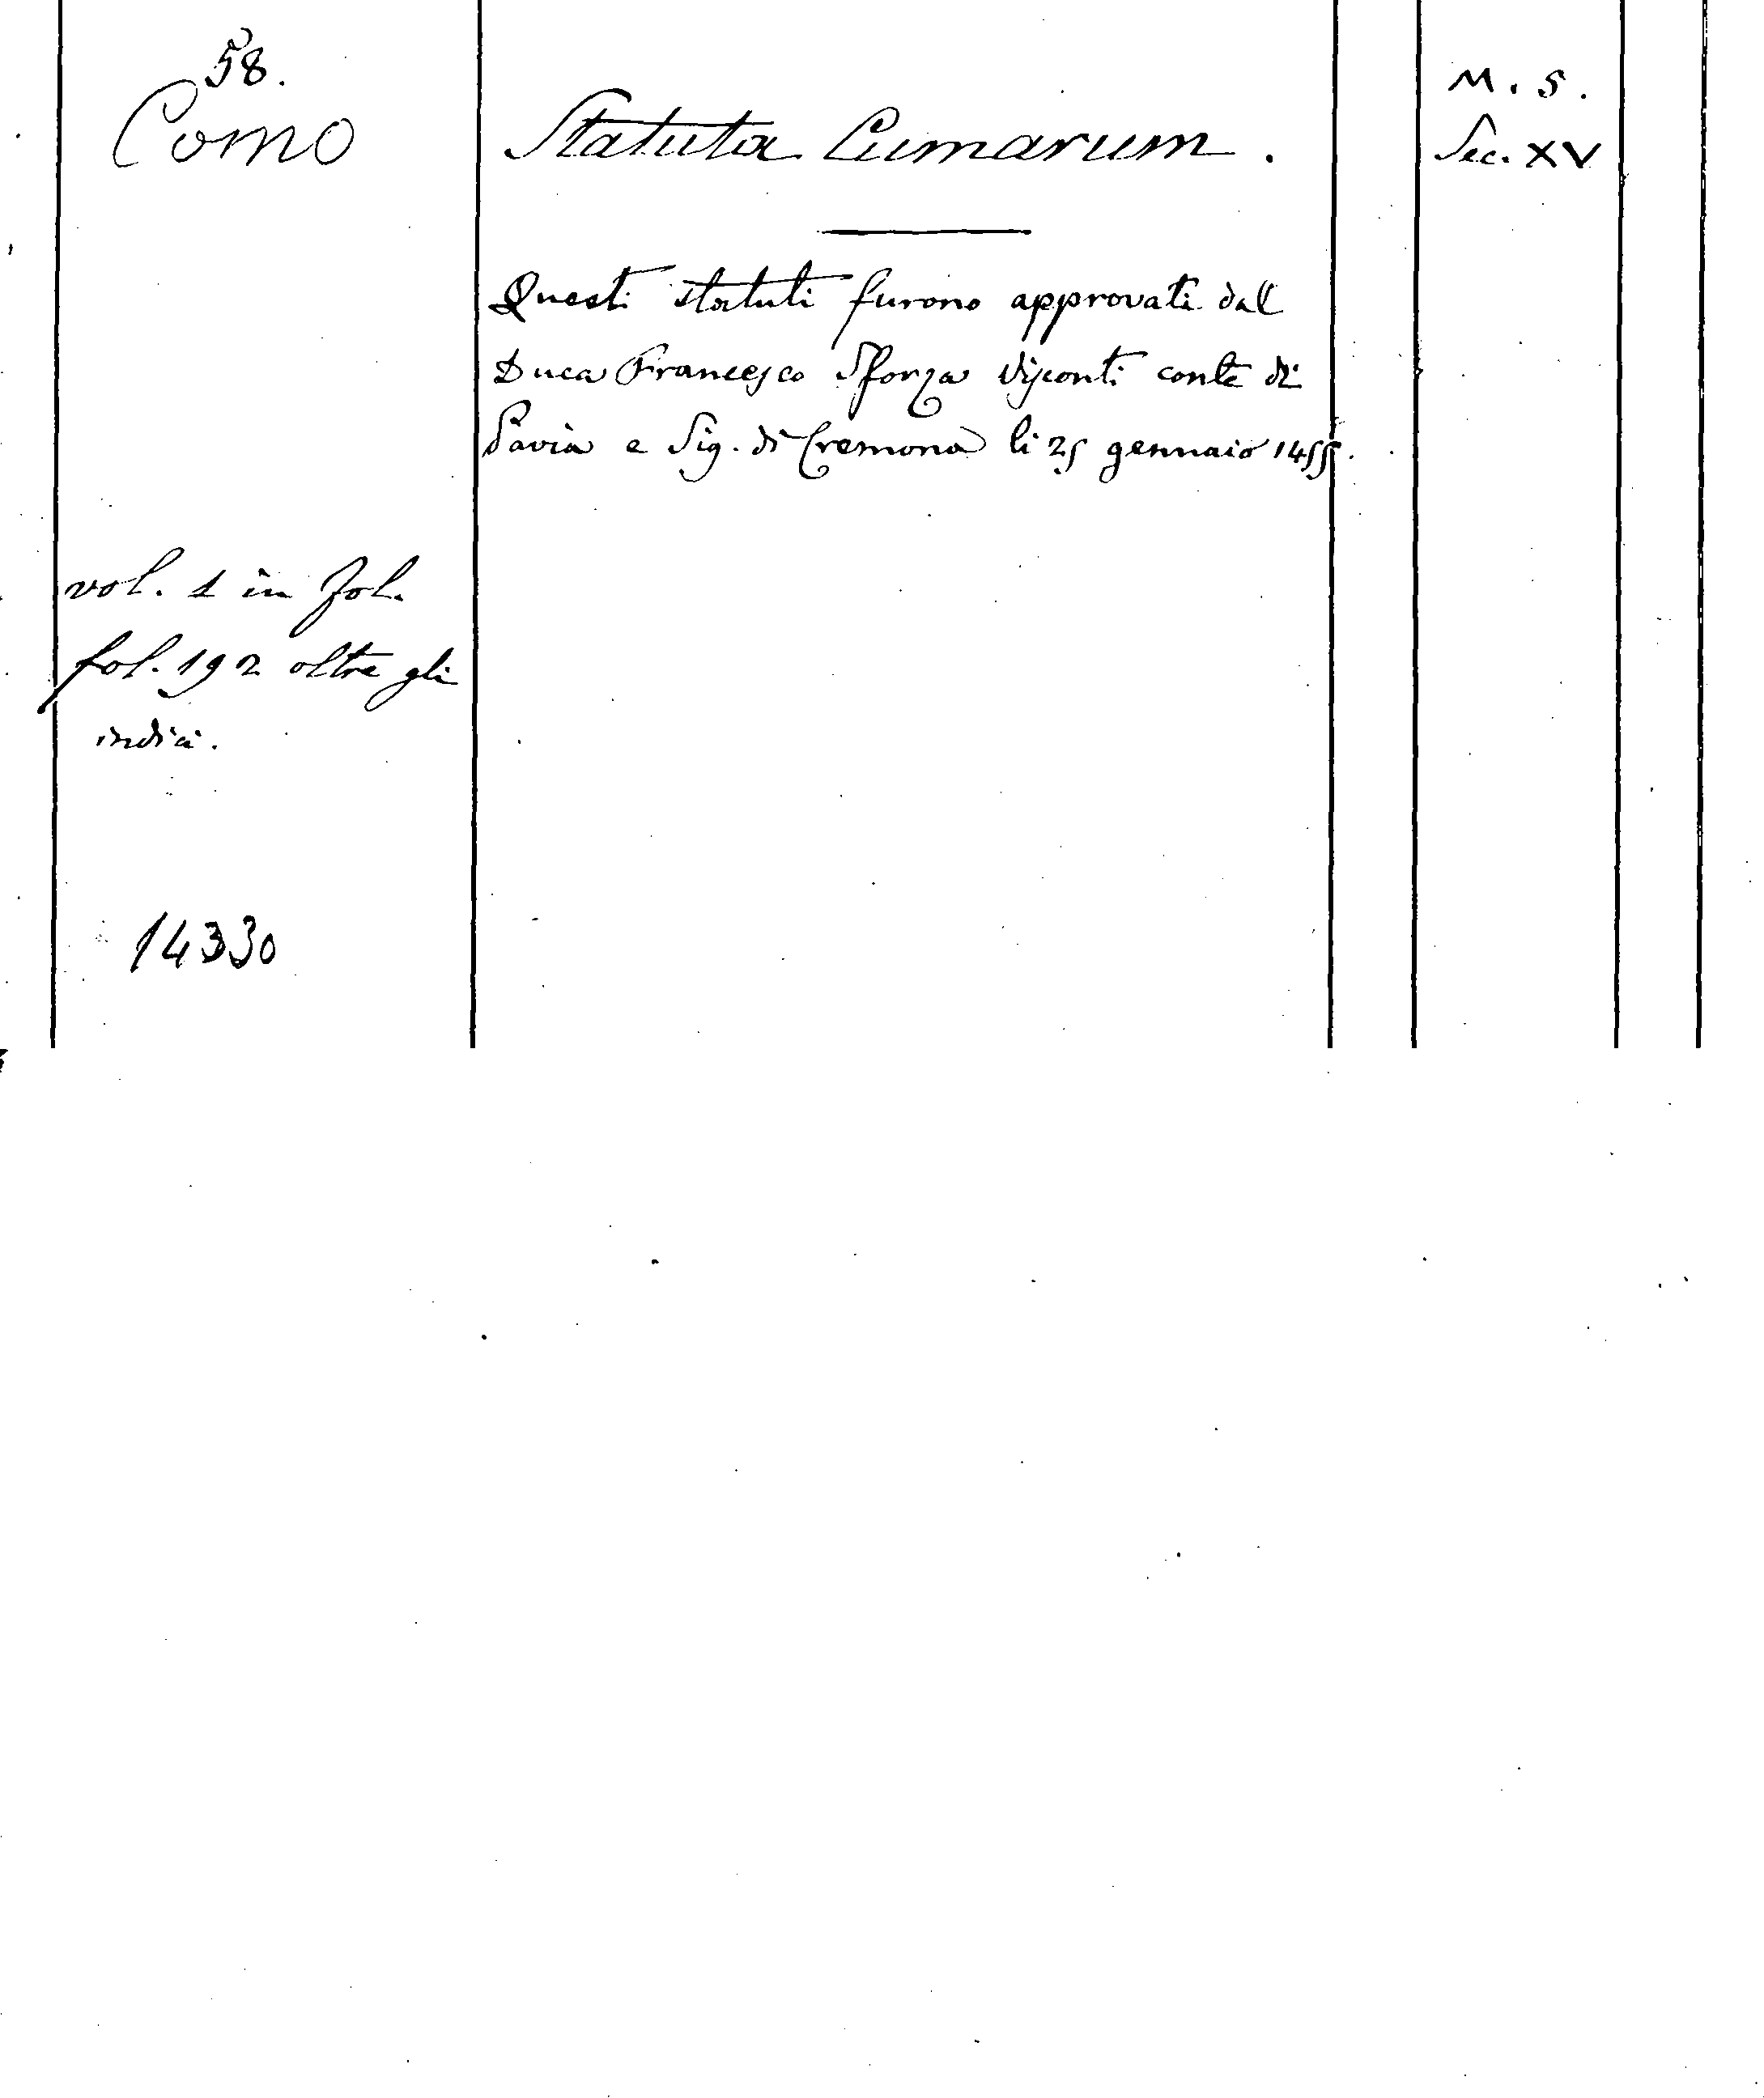 58.
Como
Statuta Cumarum.
M. S.
Sec. XV
Questi statuti furono approvati dal
Duca Francesco Sforza Visconti conte di
Pavia e Sig. di Cremona li 25 gennaio 1455.
vol. 1 in fol.
fol. 192 oltre gli
indici.
14330